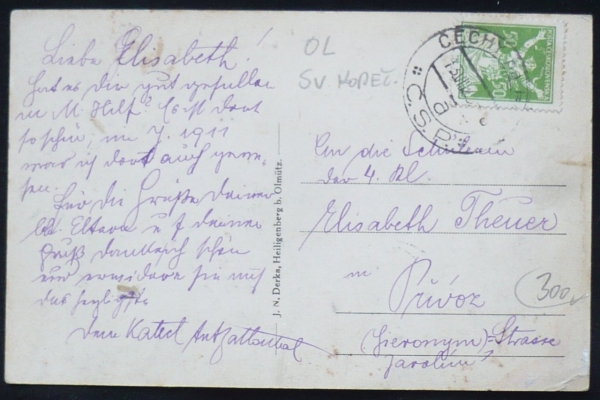 Liebe Elisabeth!
Hat es dir gut gefallen
in M. Hilf? Es ist dort
so schön; im J. 1911
war ich dort auch gewe-
sen.
Für die Grüße deiner
lb. Eltern u. f deinen
Gruß danke ich schön
und erwidere sie mit
das herzlichste
Dein Katech
OL
SV KOPEČ.
J. N. Derka, Heiligenberg b. Olmütz.
ČECHY
Č.S.P.
50
An die Schülerin
der 4. Kl.
Elisabeth Theuer
in
Přívoz
300,-
(Hieronym)-Strasse
Jarolím